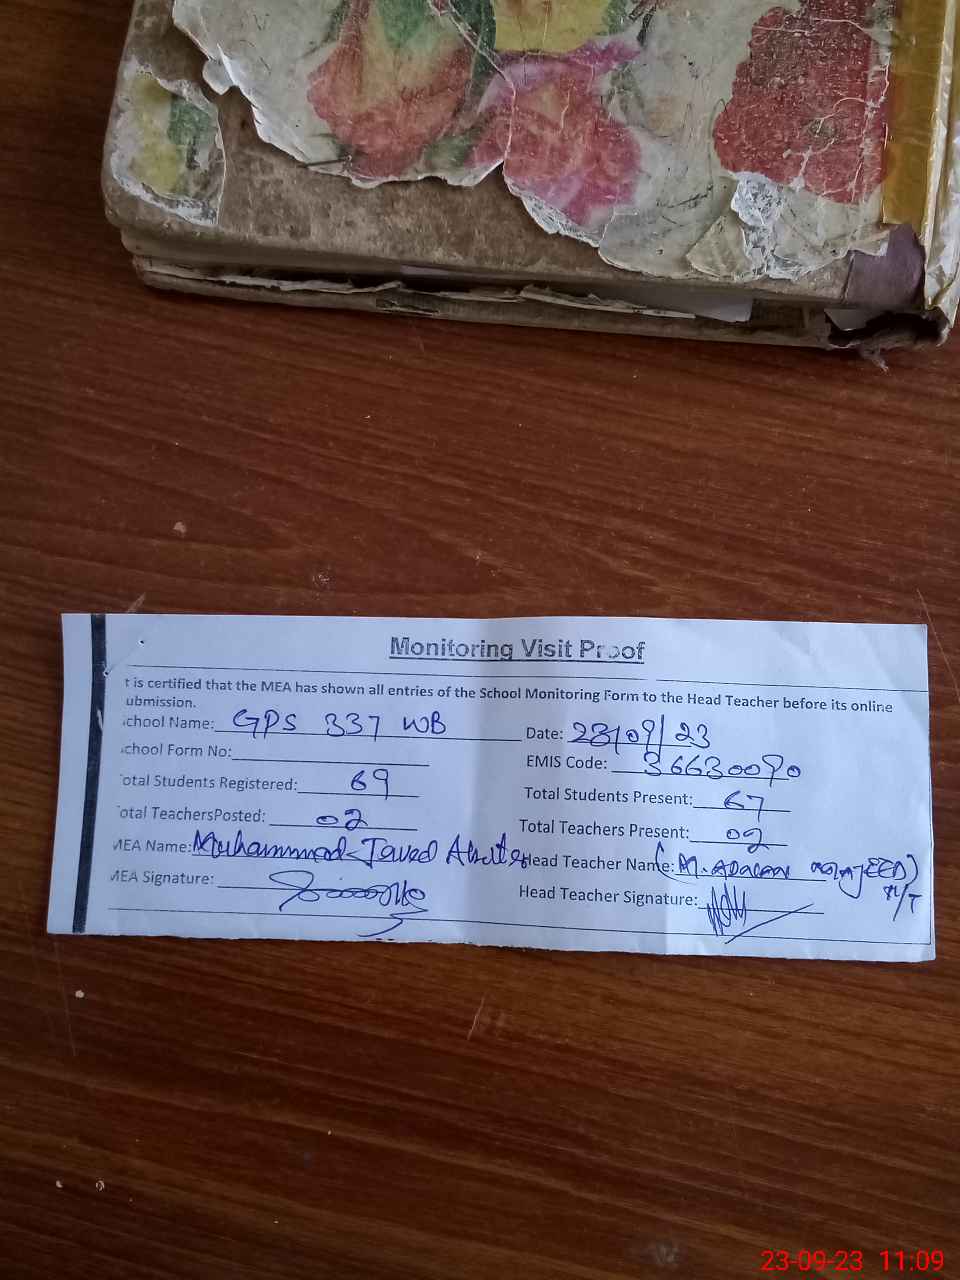 Monitoring Visit Proof
t is certified that the MEA has shown all entries of the School Monitoring Form to the Head Teacher before its online
ubmission.
chool Name: GPS 337 WB Date: 23/09/23
chool Form No: EMIS Code: 36630090
otal Students Registered: 69 Total Students Present: 67
otal TeachersPosted: 02 Total Teachers Present: 02
MEA Name: Muhammad Javed Akhter Head Teacher Name: (M.
MEA Signature: Head Teacher Signature:
23-09-23 11:09